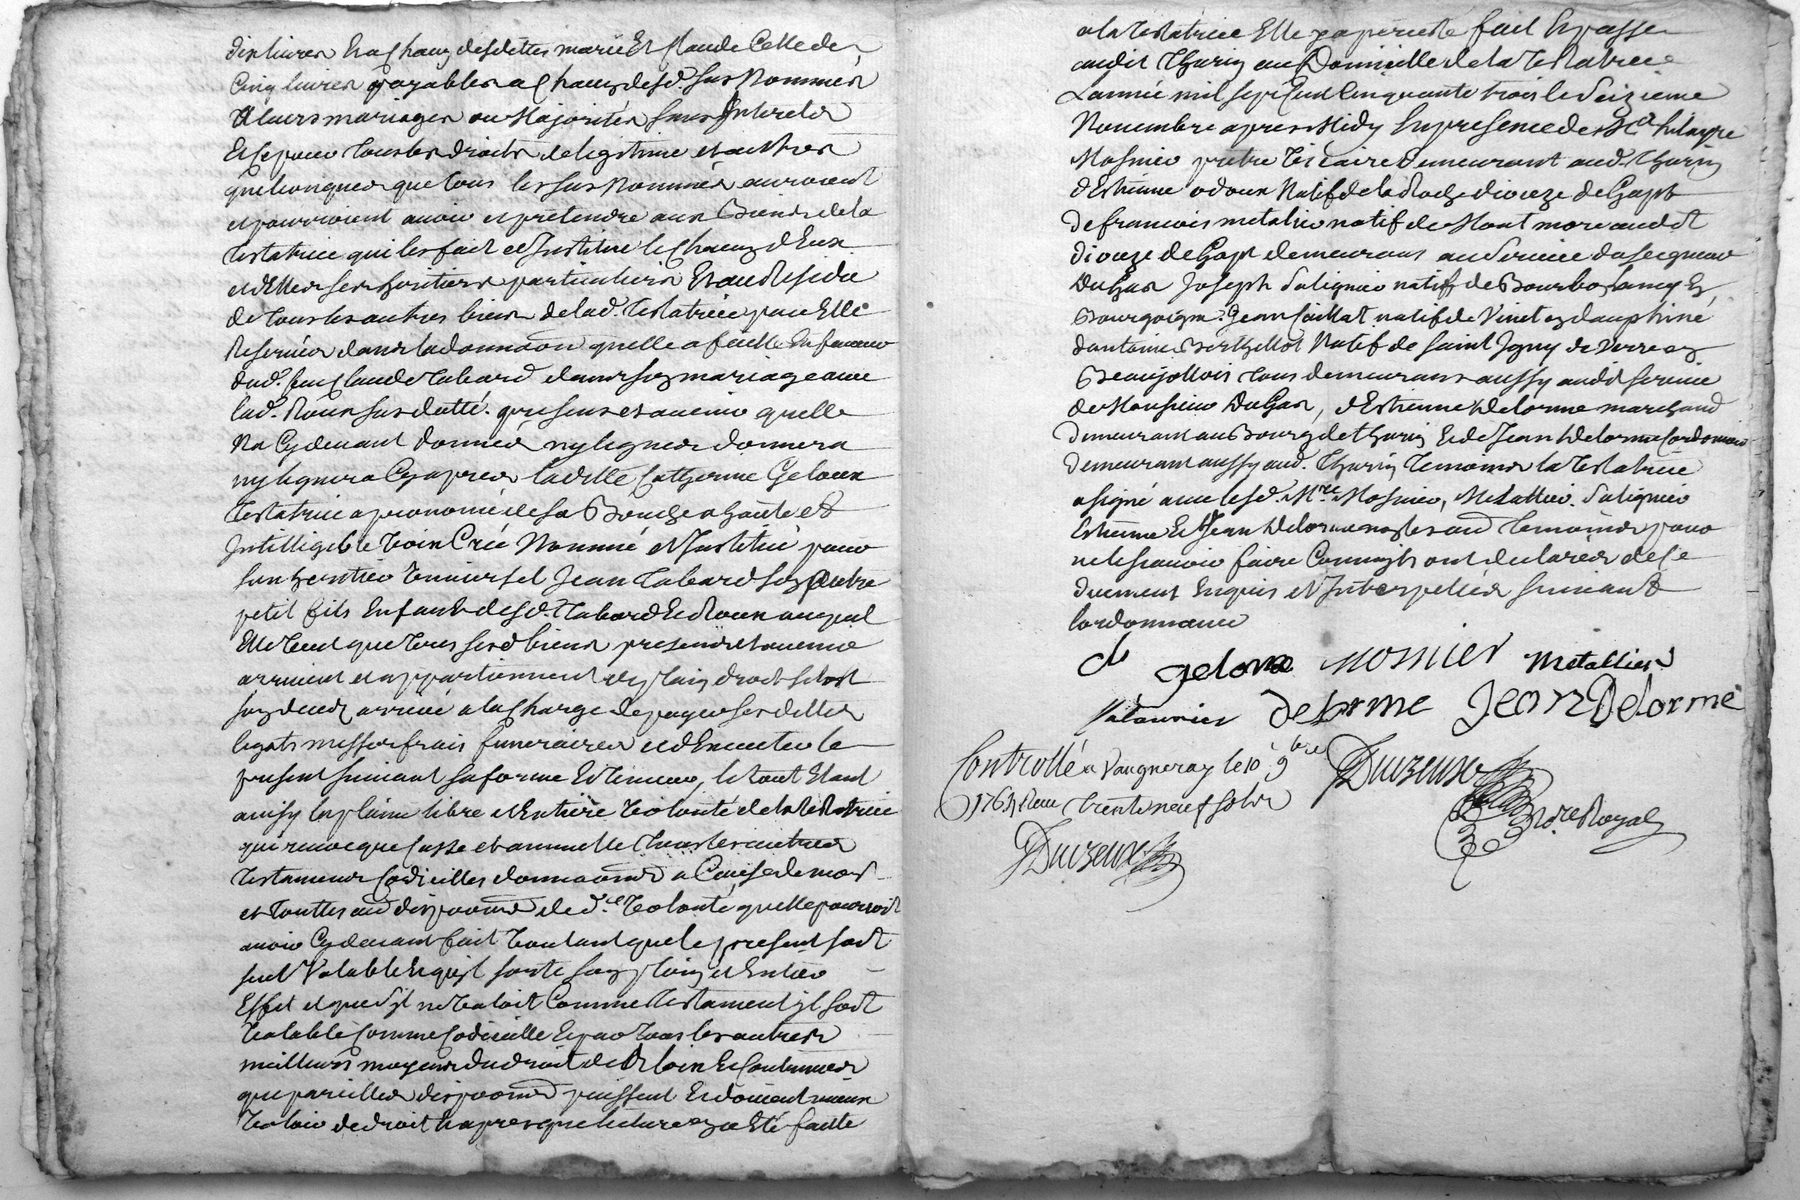 dix livres & a chacun desdittes marie Et Claude Celle de
Cinq livres payables a chacun desd. sus Nommés
A leurs mariages ou Majorités sans Interets
Et ce pour tous les droits de legitime et autres
quelconques que tous les sus Nommés auroient
et pourroient avoir et pretendre aux Biens de la
testatrice qui les fait et Institue le chacun d'Eux
et d'Elles ses heritiers particuliers Et au Residu
de tous les autres biens de lad. testatrice par Elle
Reservés dans la donnaon quelle a faitte En faveur
dud. feu Claude tabard dans son mariage avec
lad. Roux sus datté. presens et avenir quelle
Na Cy devant donnés ny legués donnera
ny leguera Cy apres laditte Catherine Geloux
testatrice a prononcé de sa Bouche a haute et
Intelligible voix Créé Nommé et Institué pour
son heritier universel Jean tabard son autre
petit fils Enfant desd. tabard Et Roux auquel
Elle veut que tous sesd biens presens et avenir
arrivent et appartiennent de plain droit sitost
son deces arrivé a la charge de payer ses dettes
legats messes frais funeraires et d'Executer le
present suivant sa forme Et teneur, le tout Etant
ainsy la plaine libre et Entiere volonté de la testatrice
qui revocque casse et annulle tous les autres
testamens Codicilles donnaons a Cause de mort
et touttes autres dispoons de dre volonté quelle pourroit
avoir Cy devant fait voulant que le present soit
seul Valable Et quil sorte son plain et Entier
Effet et que s'il ne valoit Comme testament il soit
valable Comme Codicille Et par tous les autres
meilleurs moyens du droit des loix Et Coutumes
que pareilles dispoons puissent Et doivent mieux
valoir de droit & apres que lecture en a Eté faitte
a la testatrice Elle y a persisté fait & passé
audit thurin au Domicille de la testatrice
L'année mil sept Cent Cinquante trois le seizieme
Novembre apres Midy En presence de Mre hilayre
Mosnier prêtre vicaire demeurant aud. thurin
d'Estienne odoux Natif de la Roche dioceze de Gapt
de francois metalier natif de Mont more audit
dioceze de Gapt demeurans au service du seigneur
Dugas Joseph Salignier natif de Bourbo lancy En
Bourgogne. Jean Caillat natif de Vinet en dauphiné
d'antoine Berthellot Natif de Saint Igny de Verre en
Beaujollois tous demeurans aussy audit service
de Monsieur Dugas, d'Estienne Delorme marchand
demeurant au Bourg de thurin Et de Jean Delorme Cordonnier
demeurant aussy aud. thurin temoins la testatrice
a signé avec lesd. Mre Mosnier, Metallier. Salignier
Estienne Et Jean Delorme non les autres temoins pour
ne le scavoir faire Comm'ils ont declarés de ce
duement Enquis et Interpellés suivant
lordonnance
C geloux mosnier metallier
Salannier Delorme Jean Delorme
Controllé a Vaugneray le 10 9bre
Reçu trente neuf sols
Duvzeux
Nore Royal
Duvzeux